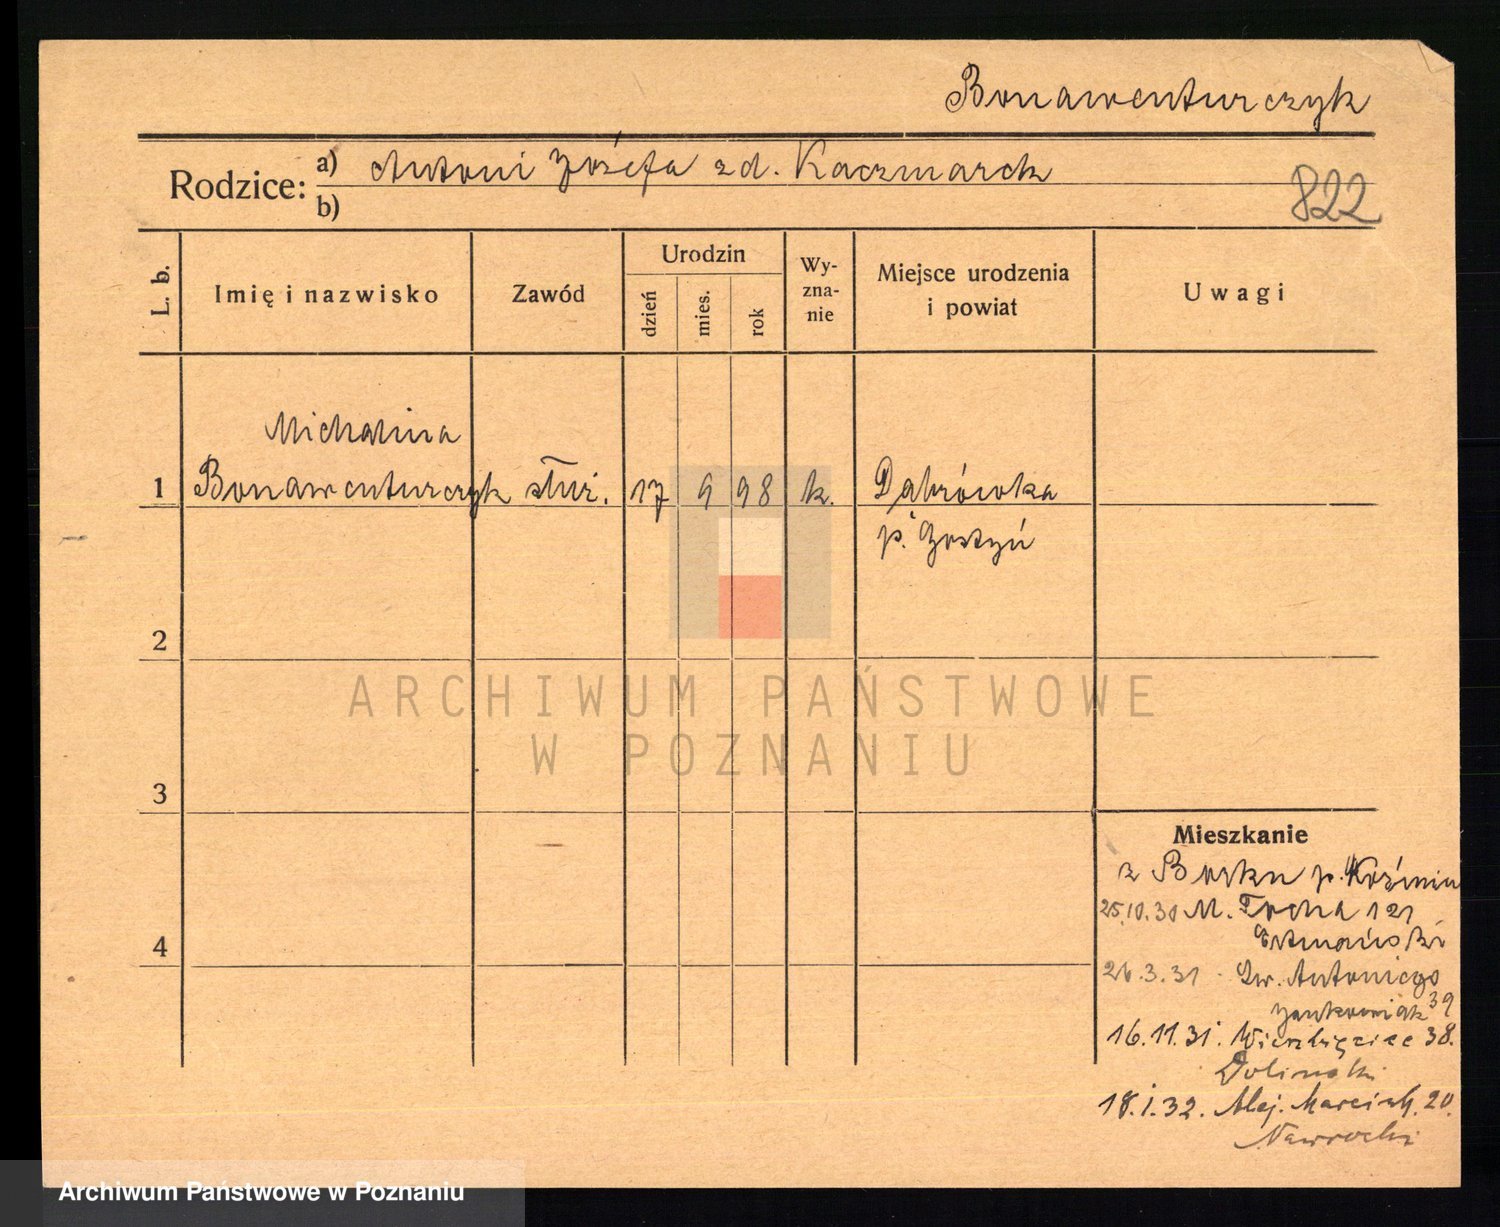 Bonawenturczyk
Rodzice: a) Antoni Józefa zd. Kaczmarek
b)
822
L. b.
Imię i nazwisko
Zawód
Urodzin
dzień
mies.
rok
Wy-
zna-
nie
Miejsce urodzenia
i powiat
Uwagi
Michalina
1 Bonawenturczyk służ. 17 9 98 k. Dąbrówka
p. Gostyń
2
3
4
Mieszkanie
z Borku p. Koźmin
25.10.30 M. Focha 121
26.3.31 Św. Antoniego
39
Jankowiak
16.11.31. Wierzbięcice 38.
Dolinski
18.I.32. Alej. Marcink. 20.
Nawrocki
ARCHIWUM PAŃSTWOWE
W POZNANIU
Archiwum Państwowe w Poznaniu